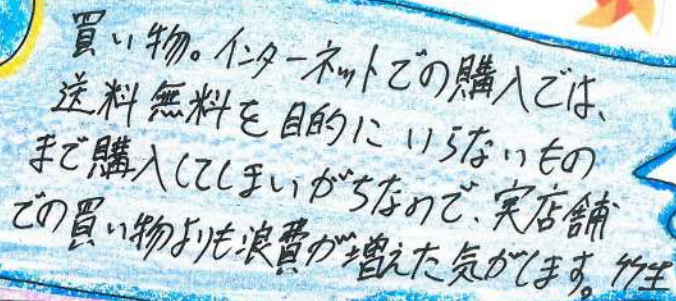 買い物。インターネットでの購入では、
送料無料を目的にいらないもの
まで購入してしまいがちなので、実店舗
での買い物よりも浪費が増えた気がします。竹生